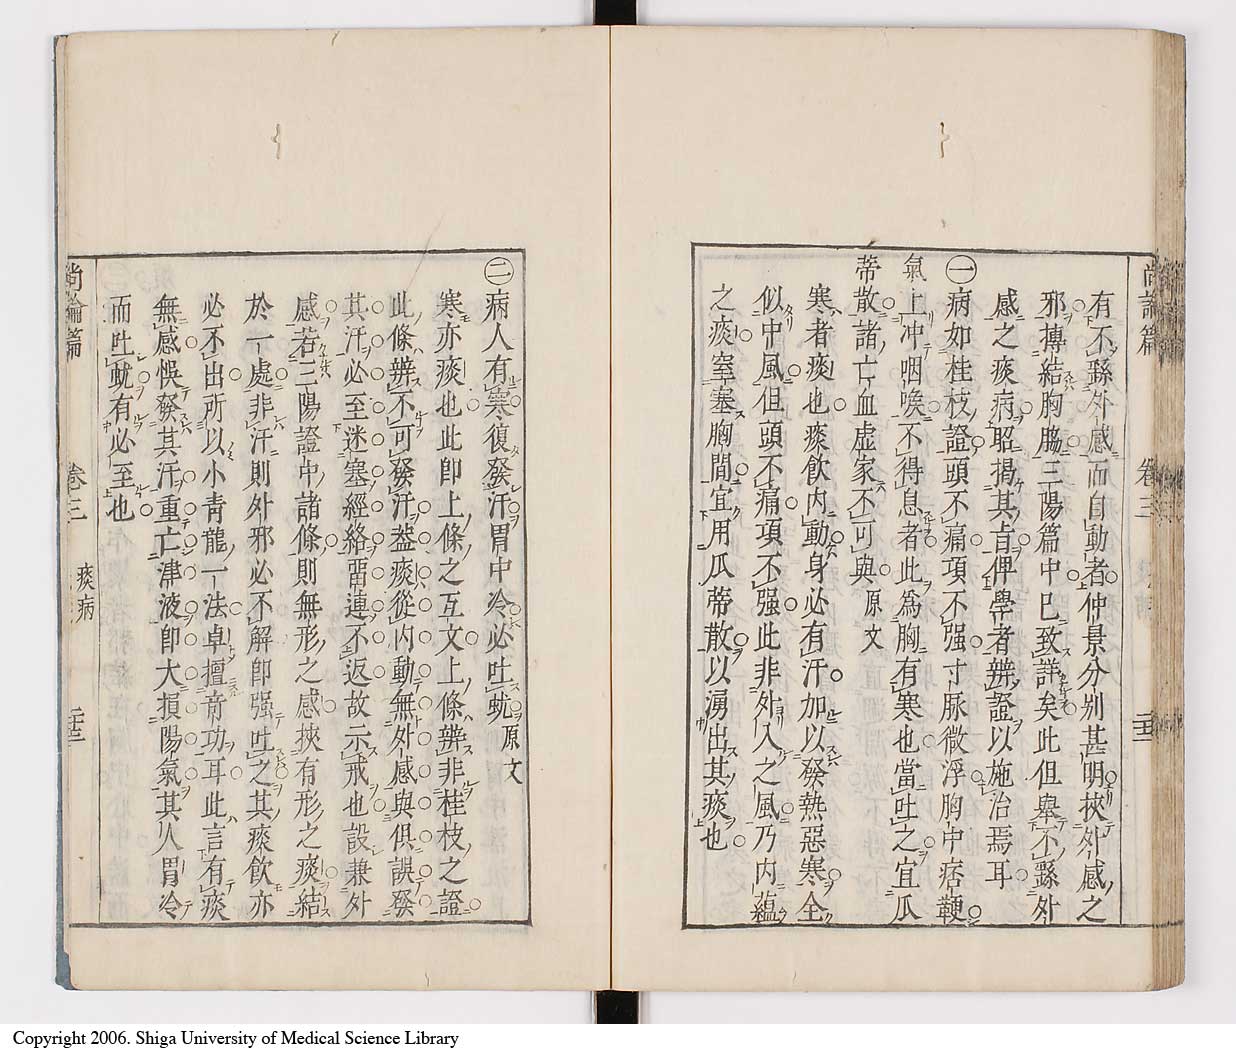 尚論篇 卷三 二十二
有不繇外感而自動者仲景分別甚明挾外感之
邪搏結胸脇三陽篇中已致詳矣此但舉不繇外
感之痰病昭揭其旨俾學者辨證以施治焉耳
㊀病如桂枝證頭不痛項不强寸脉微浮胸中痞鞕
氣上冲咽喉不得息者此爲胸有寒也當吐之宜瓜
蒂散諸亡血虛家不可與原文
寒者痰也痰飲內動身必有汗加以發熱惡寒全
似中風但頭不痛項不强此非外入之風乃內蘊
之痰窒塞胸間宜用瓜蒂散以湧出其痰也
㊁病人有寒復發汗胃中冷必吐蚘原文
寒亦痰也此卽上條之互文上條辨非桂枝之證
此條辨不可發汗葢痰從內動無外感與俱誤發
其汗必至迷塞經絡畱連不返故示戒也設兼外
感若三陽證中諸條則無形之感挾有形之痰結
於一處非汗則外邪必不解卽强吐之其痰飲亦
必不出所以小青龍一法卓擅竒功耳此言有痰
無感悞發其汗重亡津液卽大損陽氣其人胃冷
而吐蚘有必至也
尚論篇 卷三 痰病 二十三
Copyright 2006. Shiga University of Medical Science Library